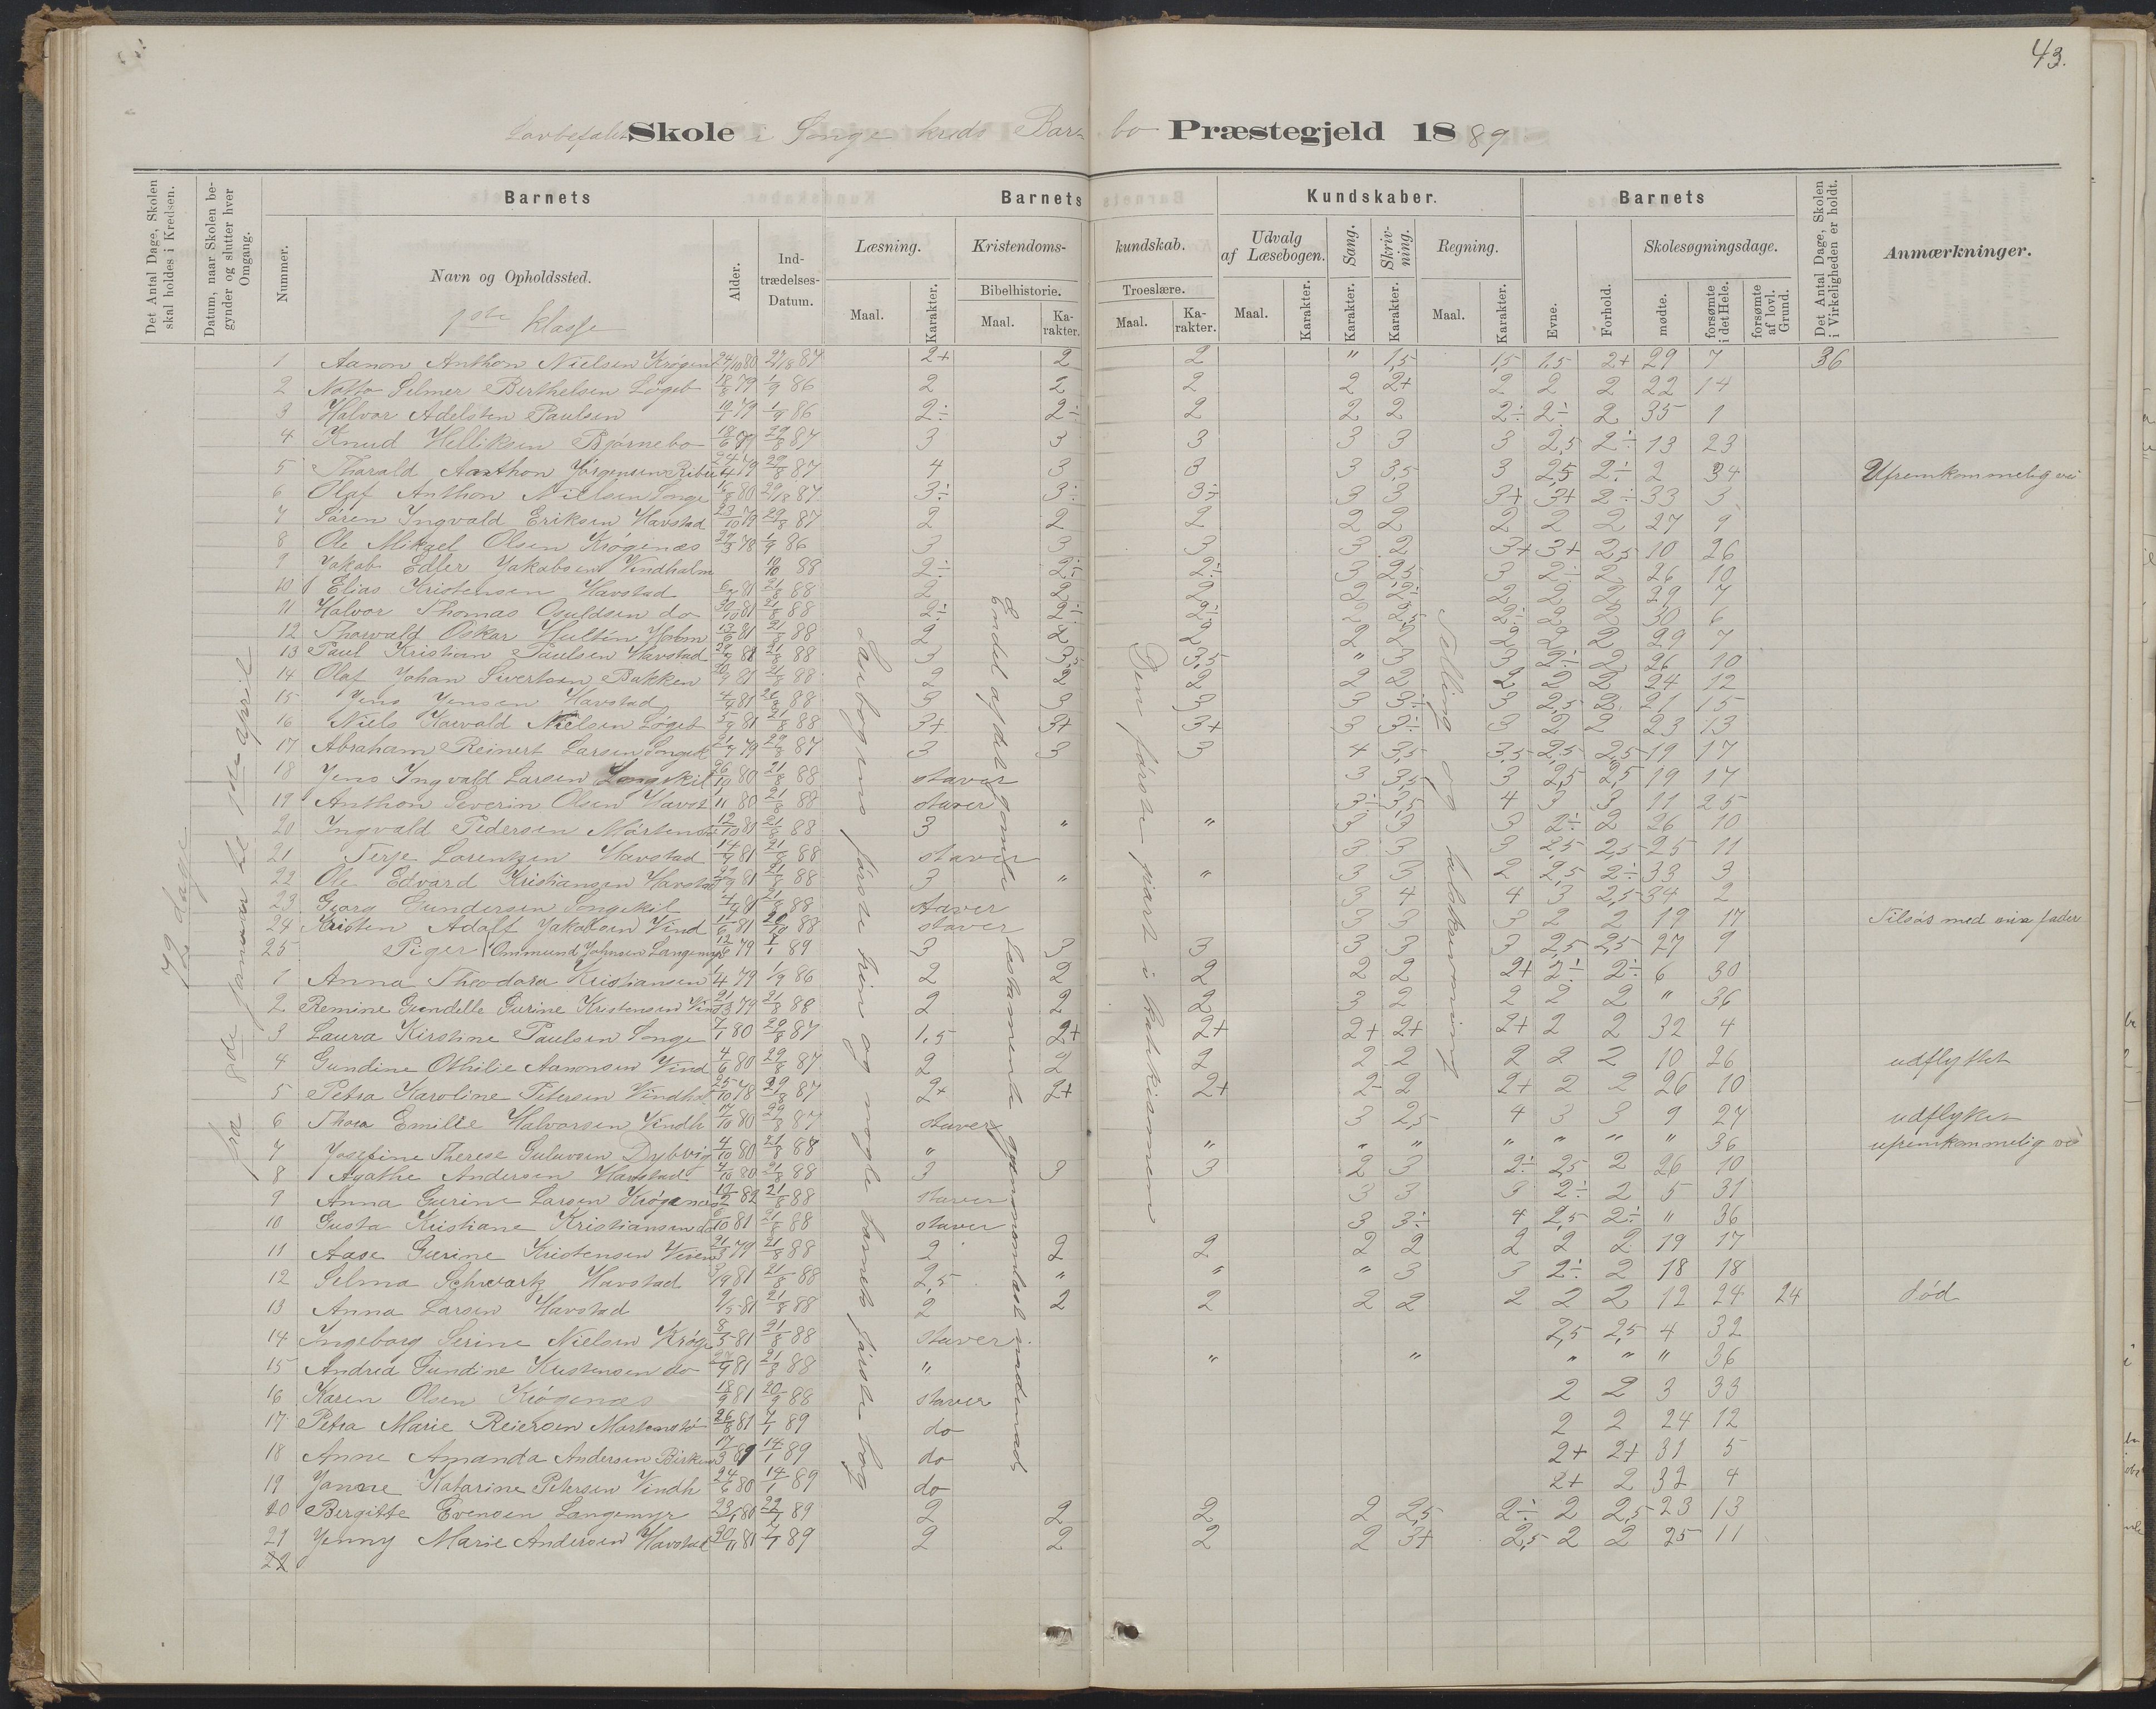 43.
Skole i Songe kreds Barbo Præstegjeld 1889
Det Antal Dage, Skolen skal holdes i Kredsen.
Datum, naar Skolen begynder og slutter hver Omgang.
Nummer.
Barnets
Navn og Opholdssted.
1ste klasse
Alder.
Indtrædelses-Datum.
Barnets Kundskaber.
Læsning.
Maal.
Karakter.
Kristendomskundskab.
Bibelhistorie.
Maal.
Karakter.
Troeslære.
Maal.
Karakter.
Udvalg af Læsebogen.
Maal.
Karakter.
Sang.
Karakter.
Skrivning.
Karakter.
Regning.
Maal.
Karakter.
Barnets
Evne.
Forhold.
Skolesøgningsdage.
mødte.
forsømte i det Hele.
forsømte af lovl. Grund.
Det Antal Dage, Skolen i Virkeligheden er holdt.
Anmærkninger.
72 dage
fra 8de januar til 1ste april
Læsbogens første trin og nogle barnets første bog
Endel af det gamle testamente gjennomlæst
Den første part i katekismen
Tælling og talskrivning
1 Aanon Anthon Nielsen Krøgen 24/10 80 29/8 87 2+ 2 2 " 1,5 1,5 1,5 2+ 29 7 36
2 Selmer Berthelsen Løget 18/8 79 1/9 86 2 2 2 2 2+ 2 2 2 22 14
3 Halvor Adelsten Paulsen 79 1/9 86 2÷ 2÷ 2 2 2 2÷ 2÷ 2 35 1
4 Knud Helliksen Bjørnebo 18/6 79 29/8 87 3 3 3 3 3 3 2,5 2÷ 13 23
5 Tharald Aanthon Jørgensen 24/4 79 29/8 87 4 3 3 3 3,5 3 2,5 2÷ 2 34 Ufremkommelig vei
6 Olaf Anthon Nielsen Songe 80 29/8 87 3÷ 3÷ 3÷ 3 3 3+ 3+ 2÷ 33 3
7 Søren Ingvald Eriksen Havstad 23/10 79 29/8 87 2 2 2 2 2 2 2 2 27 9
8 Ole Mikael Olsen Krøgenæs 29/3 78 1/9 86 3 3 3 3 2 3+ 3+ 2,5 10 26
9 Jakob Edler Jakobsen Vindholm 88 2÷ 2÷ 2÷ 3 2,5 3 2÷ 2 26 10
10 Elias Kristensen Havstad 81 21/8 88 2 2 2 2 2÷ 2 2 2 29 7
11 Halvor Thomas Osuldsen do 30/10 81 21/8 88 2÷ 2÷ 2÷ 2 2,5 2÷ 2 2 30 6
12 Tharvald Oskar Hultin Holm 13/6 81 21/8 88 2 2 2 2 2 2 2 2 29 7
13 Paul Kristian Paulsen Havstad 81 21/8 88 3 3,5 3,5 " 3 3 2÷ 2 26 10
14 Olaf Johan Sivertsen Bakken 81 21/8 88 2 2 2 2 2 2 2 2 24 12
15 Jens Jensen Havstad 4/9 81 88 3 3 3 3 3÷ 3 2,5 2 21 15
16 Niels Nielsen Løget 81 21/8 88 3+ 3+ 3+ 3 3÷ 3 2 2 23 13
17 Abraham Reinert Larsen 79 29/8 87 3 3 3 4 3,5 3,5 2,5 2,5 19 17
18 Jens Ingvald Larsen Songekil 80 21/8 88 staver 3 3,5 3 2,5 2,5 19 17
19 Anthon Severin Olsen Havst 80 21/8 88 staver 3÷ 3,5 4 3 3 11 25
20 Ingvald Pedersen 12/10 81 21/8 88 3 " " 3 3 3 2÷ 2 26 10
21 Terje Lorentzen Havstad 14/9 81 21/8 88 staver 3 3 3 2,5 2,5 25 11
22 Ole Edvard Kristiansen Havstad 81 21/8 88 3 " " 3 3 2 2,5 2÷ 33 3
23 Georg Gundersen Songekil 81 21/8 88 staver 3 4 4 3 2,5 34 2
24 Kristen Adolf Jakobsen Vind 81 20/10 88 staver 3 3 3 2 2 19 17 Tilsøs med sin fader
25 Ommund Johnsen Langemyr 79 89 3 3 3 3 3 3 2,5 2,5 27 9
Piger
1 Anna Theodora Kristiansen 79 1/9 86 2 2 2 2 2 2+ 2÷ 2÷ 6 30
2 Remine Gundelle Gurine Kristensen 21/3 79 21/8 88 2 2 2 3 2 2 2 2 " 36
3 Laura Kirstine Paulsen Songe 7/1 80 29/8 87 1,5 2+ 2+ 2+ 2+ 2+ 2 2 32 4
4 Gundine Othilie Aanonsen Vind 4/6 80 29/8 87 2 2 2 2 2 2 2 2 10 26 udflyttet
5 Petra Karoline Petersen Vindhol 25/10 78 29/8 87 2+ 2+ 2+ 2 2 2+ 2 2 26 10
6 Thora Emilie Halvorsen Vindh 17/10 80 29/8 87 staver 3 2,5 4 3 3 9 27
7 Josefine Therese Gulavsen Dybvig 4/10 80 21/8 88 " " " " " " " " 36 ufremkommelig vei
8 Agathe Andersen Havstad 80 21/8 88 3 3 3 2 3 2÷ 2,5 2 26 10
9 Anna Gurine Larsen Krøgenæs 82 21/8 88 staver 3 3 3 2÷ 2 5 31
10 Gusta Kristiane Kristiansen do 81 21/8 88 staver 3 3÷ 4 2,5 2÷ " 36
11 Aase Gurine Kristensen 21/3 79 21/8 88 2 2 2 2 2 2 2 2 19 17
12 Selma Schwartz Havstad 81 21/8 88 2,5 " " " 3 3 2÷ 2 18 18
13 Anna Larsen Havstad 81 21/8 88 2 2 2 2 2 2 2 2 12 24 24 død
14 Ingeborg Serine Nielsen Krøge 81 21/8 88 staver 2,5 2,5 4 32
15 Andrea Gundine Kristensen do 81 21/8 88 " " " " " " 36
16 Karen Olsen Krøgenæs 18/9 81 20/9 88 staver 2 2 3 33
17 Petra Marie Reiersen 26/8 81 7/1 89 do 2 2 24 12
18 Anne Amanda Andersen 14/1 89 do 2+ 2+ 31 5
19 Janne Katarine Petersen Vindh 24/6 80 14/1 89 do 2+ 2 32 4
20 Bergitte Evensen Langemyr 80 89 2 2 2 2 2,5 2÷ 2 2,5 23 13
21 Jenny Marie Andersen Havstad 30/11 81 7/1 89 2 2 2 2 3+ 2,5 2 2 25 11
22